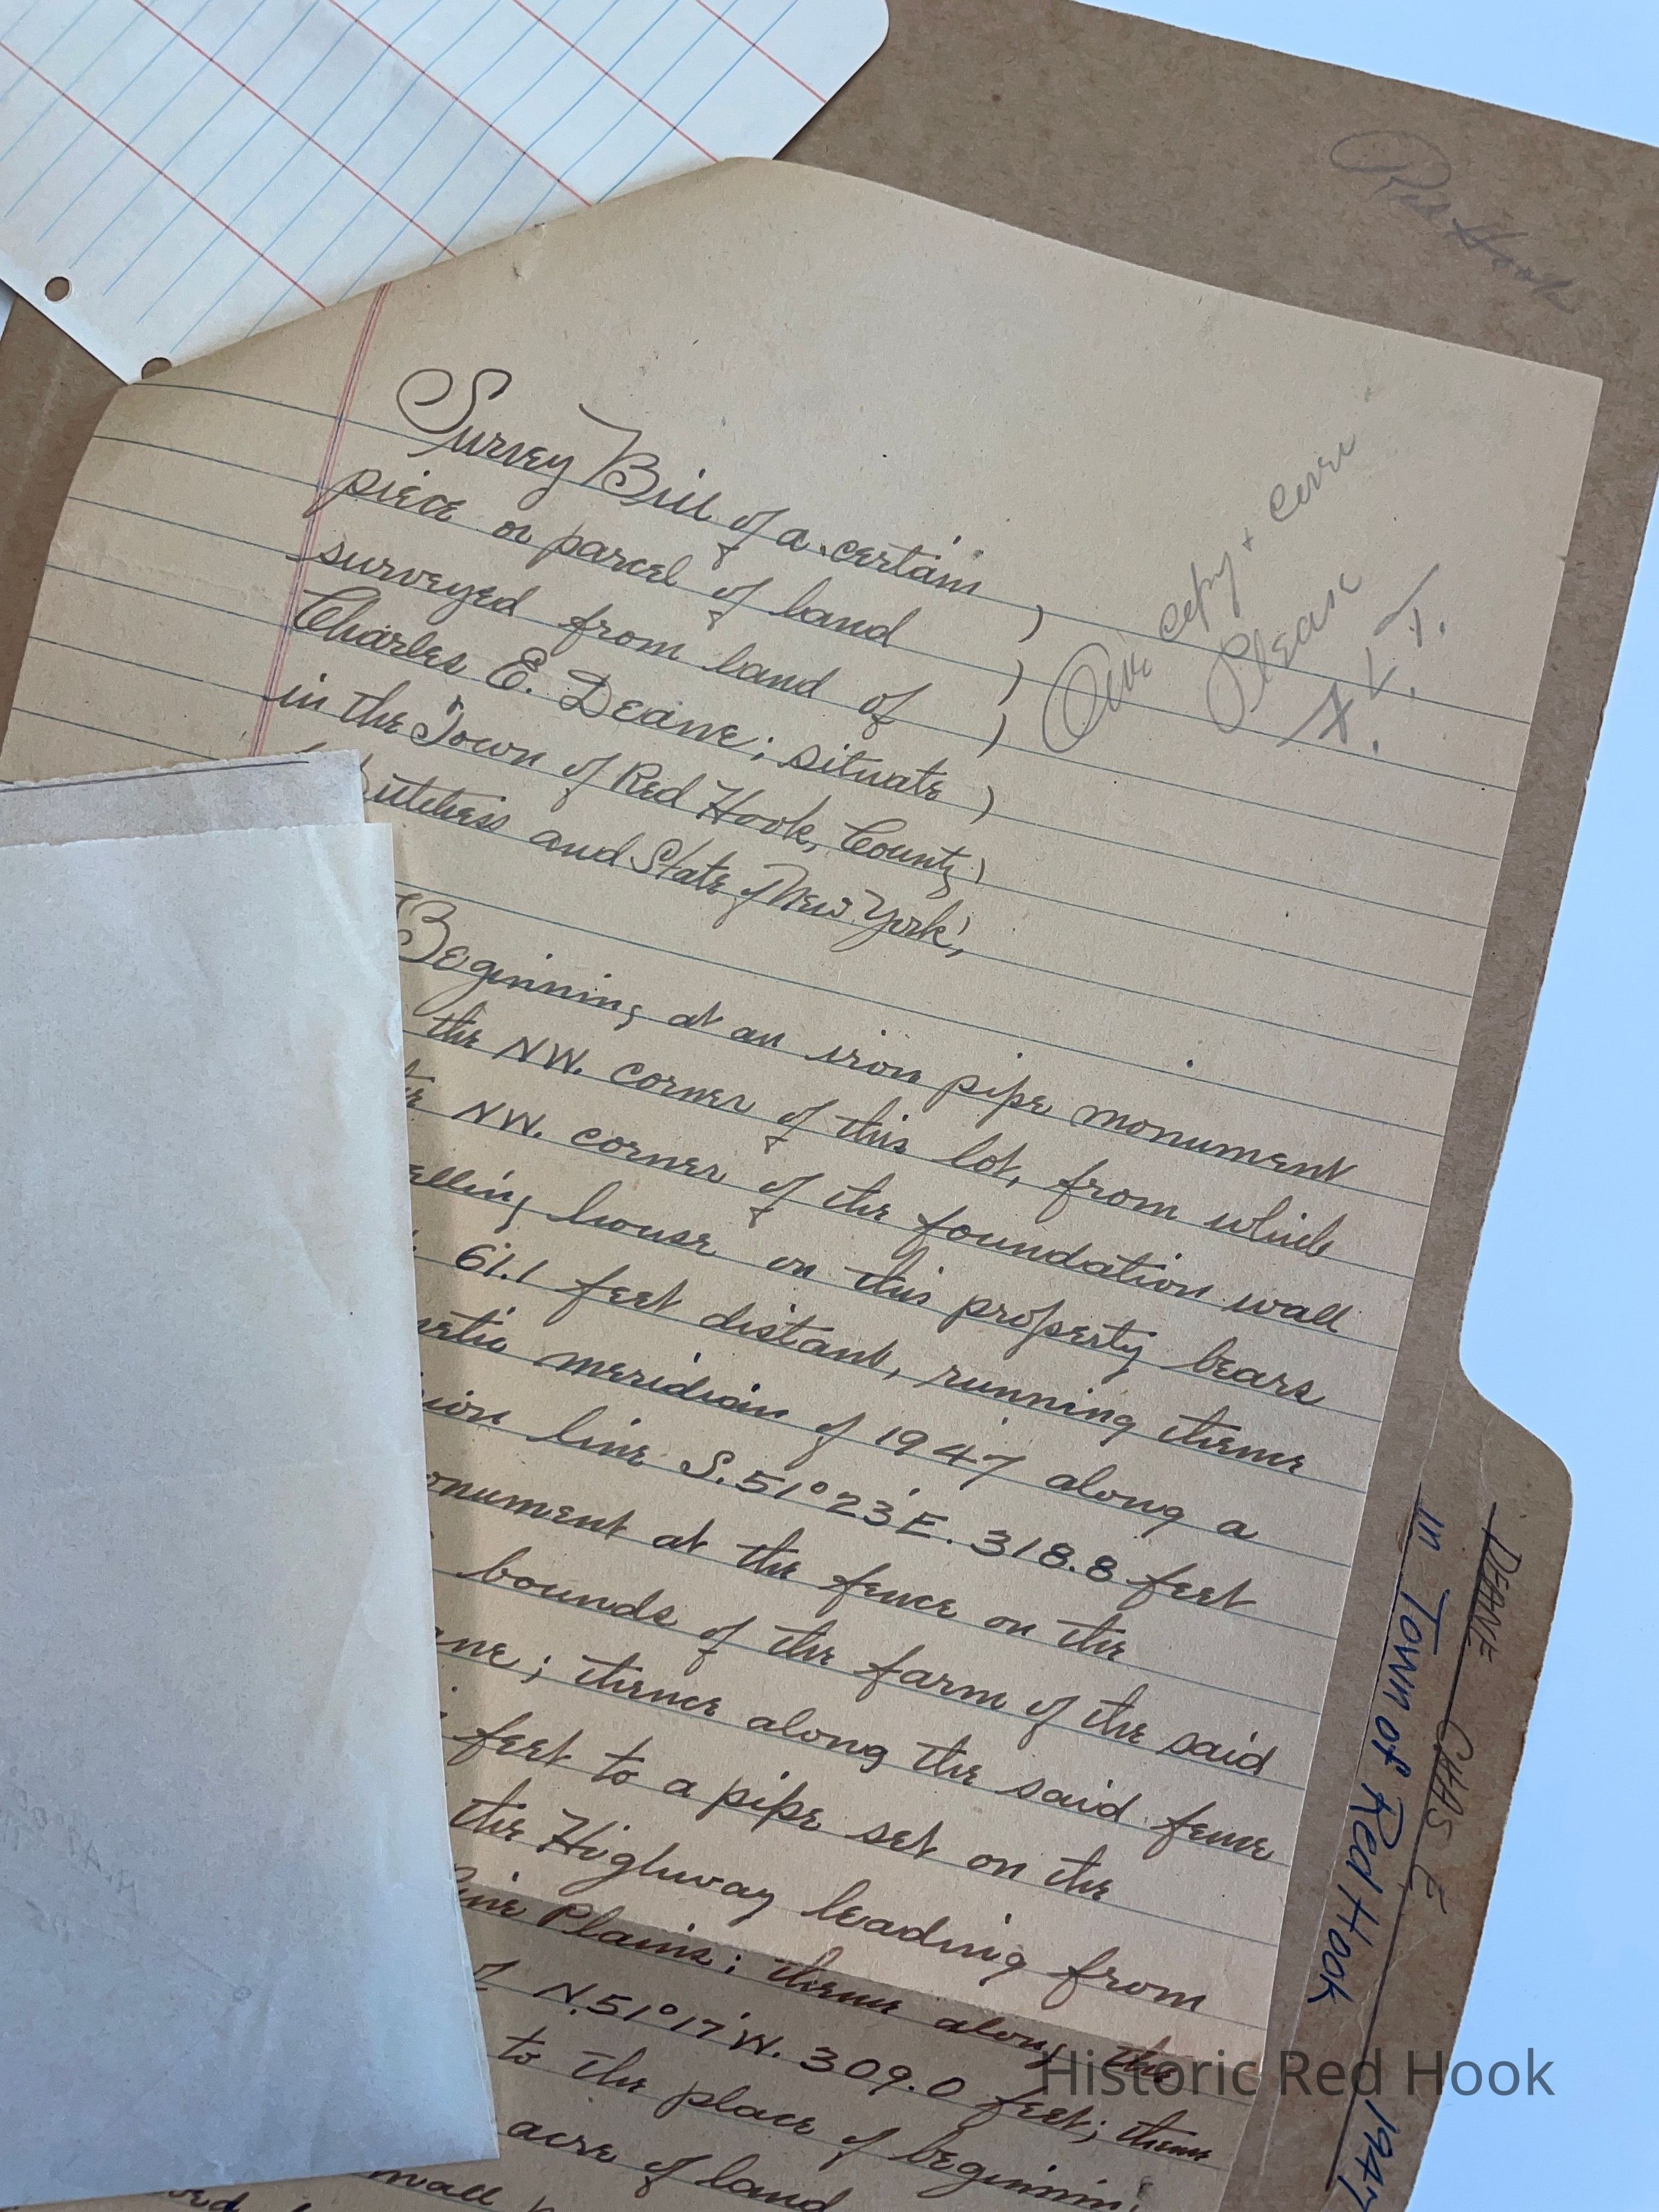 Red Hook
Survey Bill of a certain )
piece or parcel of land )
surveyed from land of )
Charles E. Deane; situate )
in the Town of Red Hook, County )
Dutchess and State of New York,
One copy + cover
Please
F. L. T.
Beginning at an iron pipe monument
the NW. corner of this lot, from which
NW. corner of the foundation wall
elling house on this property bears
61.1 feet distant, running thence
netic meridian of 1947 along a
sion line S. 51° 23' E. 318.8 feet
onument at the fence on the
bounds of the farm of the said
ane; thence along the said fence
feet to a pipe set on the
the Highway leading from
Pine Plains; thence along the
of N. 51° 17' W. 309.0 feet; thence
to the place of beginnin
acre of land
DEANE CHAS E
in Town of Red Hook 1947
Historic Red Hook